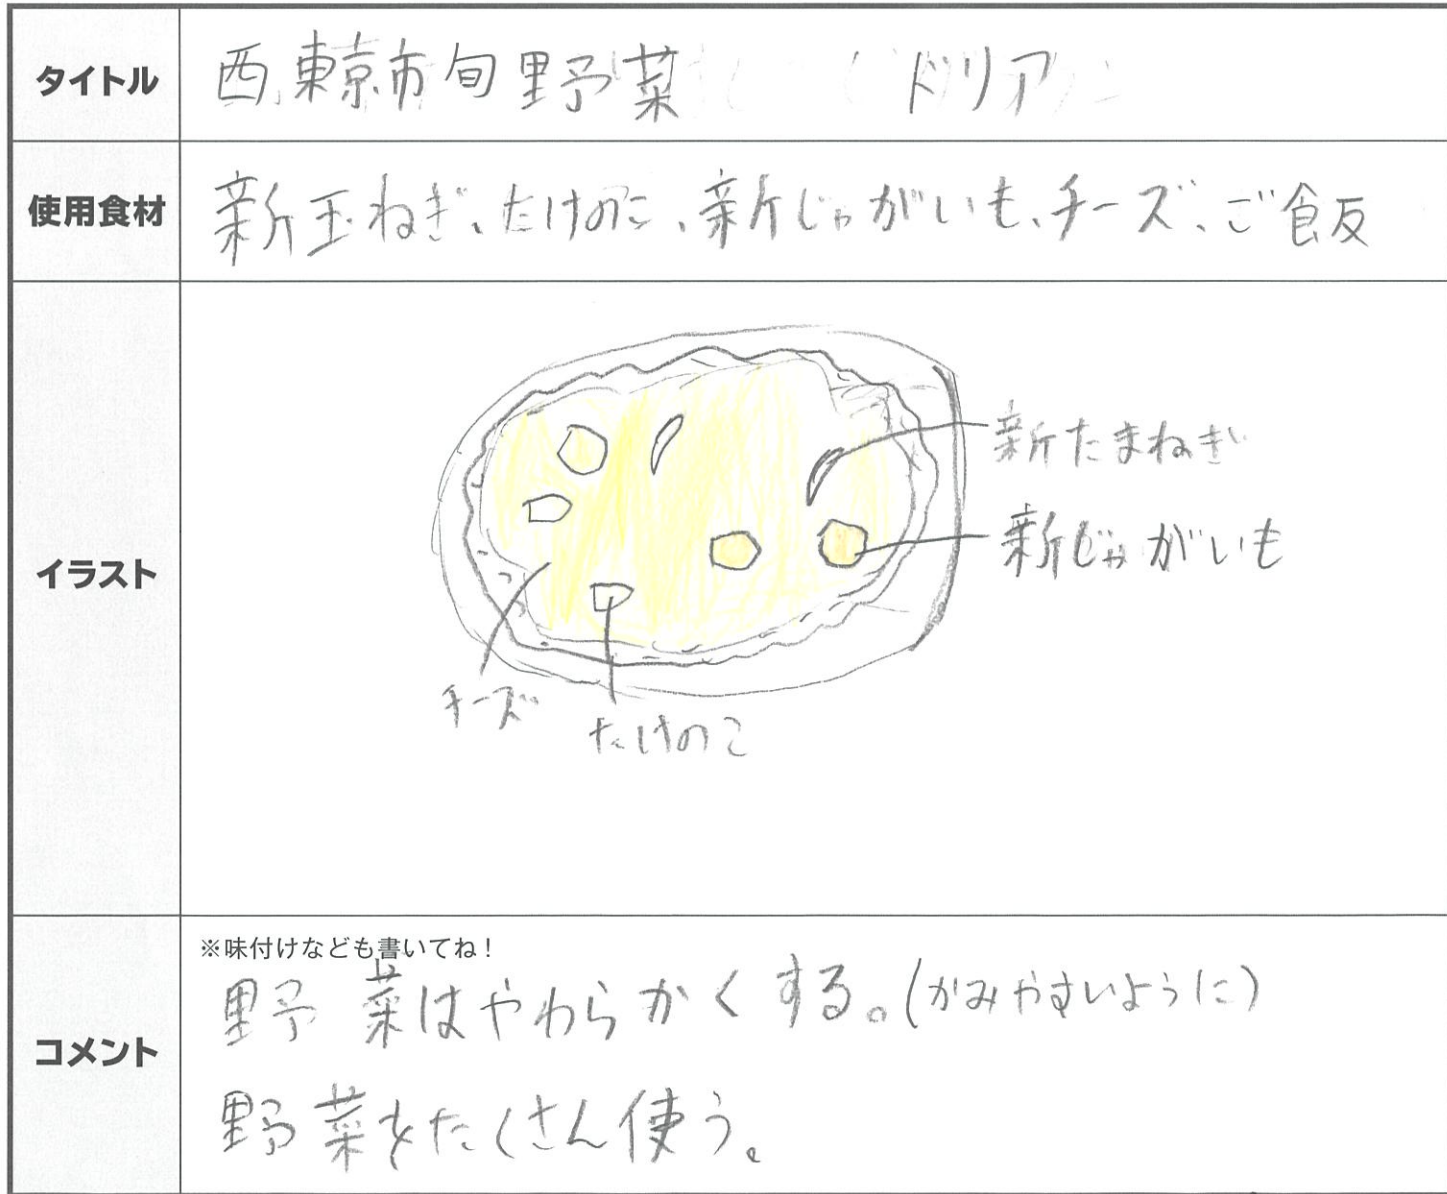 タイトル
西東京市旬野菜 ドリア
使用食材
新玉ねぎ、たけのこ、新じゃがいも、チーズ、ご飯
イラスト
新たまねぎ
新じゃがいも
チーズ
たけのこ
コメント
※味付けなども書いてね!
野菜はやわらかくする。(かみやすいように)
野菜をたくさん使う。